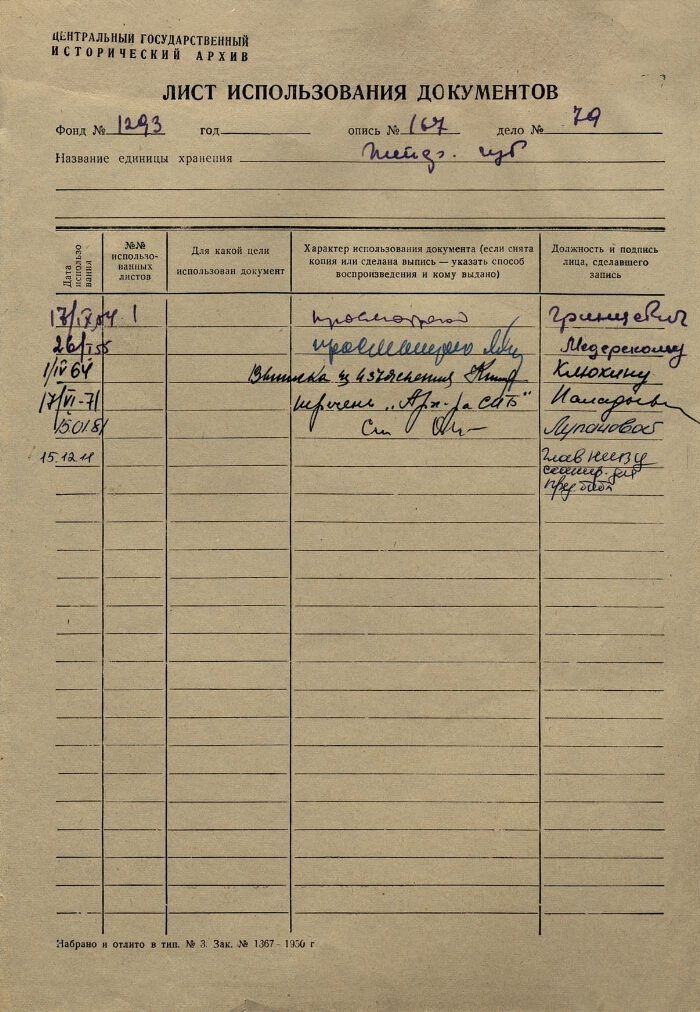 ЦЕНТРАЛЬНЫЙ ГОСУДАРСТВЕННЫЙ
ИСТОРИЧЕСКИЙ АРХИВ
ЛИСТ ИСПОЛЬЗОВАНИЯ ДОКУМЕНТОВ
Фонд № 1293 год опись № 167 дело № 79
Название единицы хранения губ
Дата использования
№№ использованных листов
Для какой цели использован документ
Характер использования документа (если снята копия или сделана выпись — указать способ воспроизведения и кому выдано)
Должность и подпись лица, сделавшего запись
17/IX 54 1 Гринцевич
26/I 55 Медерскому
1/IV 64 Выписка Клюхину
17/VI-71 перечень „
15.01.81 Лупановой
15.12.11 Главниву
Набрано и отлито в тип. № 3. Зак. № 1367—1956 г